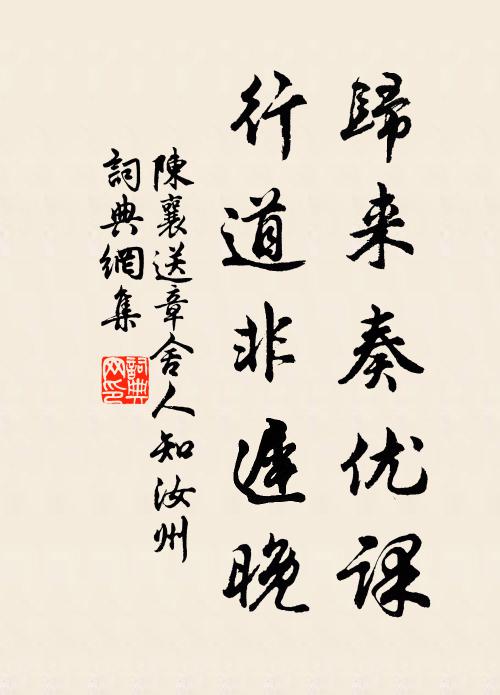 歸来奏优课
行道非遲晚
陳襄送章舍人知汝州
詞典網集
詞典網印